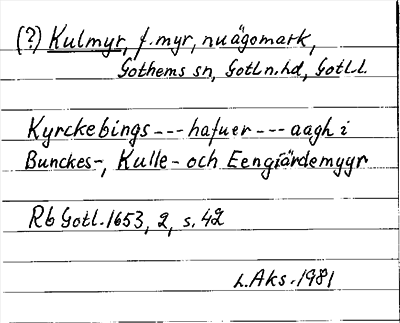 (?) Kulmyr, f. myr, nu ägomark,
Gothems sn, Gotl. n. hd, Gotl. l.
Kyrckebings --- hafuer --- aagh i
Bunckes-, Kulle- och Eengiärdemyyr
Rb Gotl. 1653, 2, s. 42
L. Aks. 1981